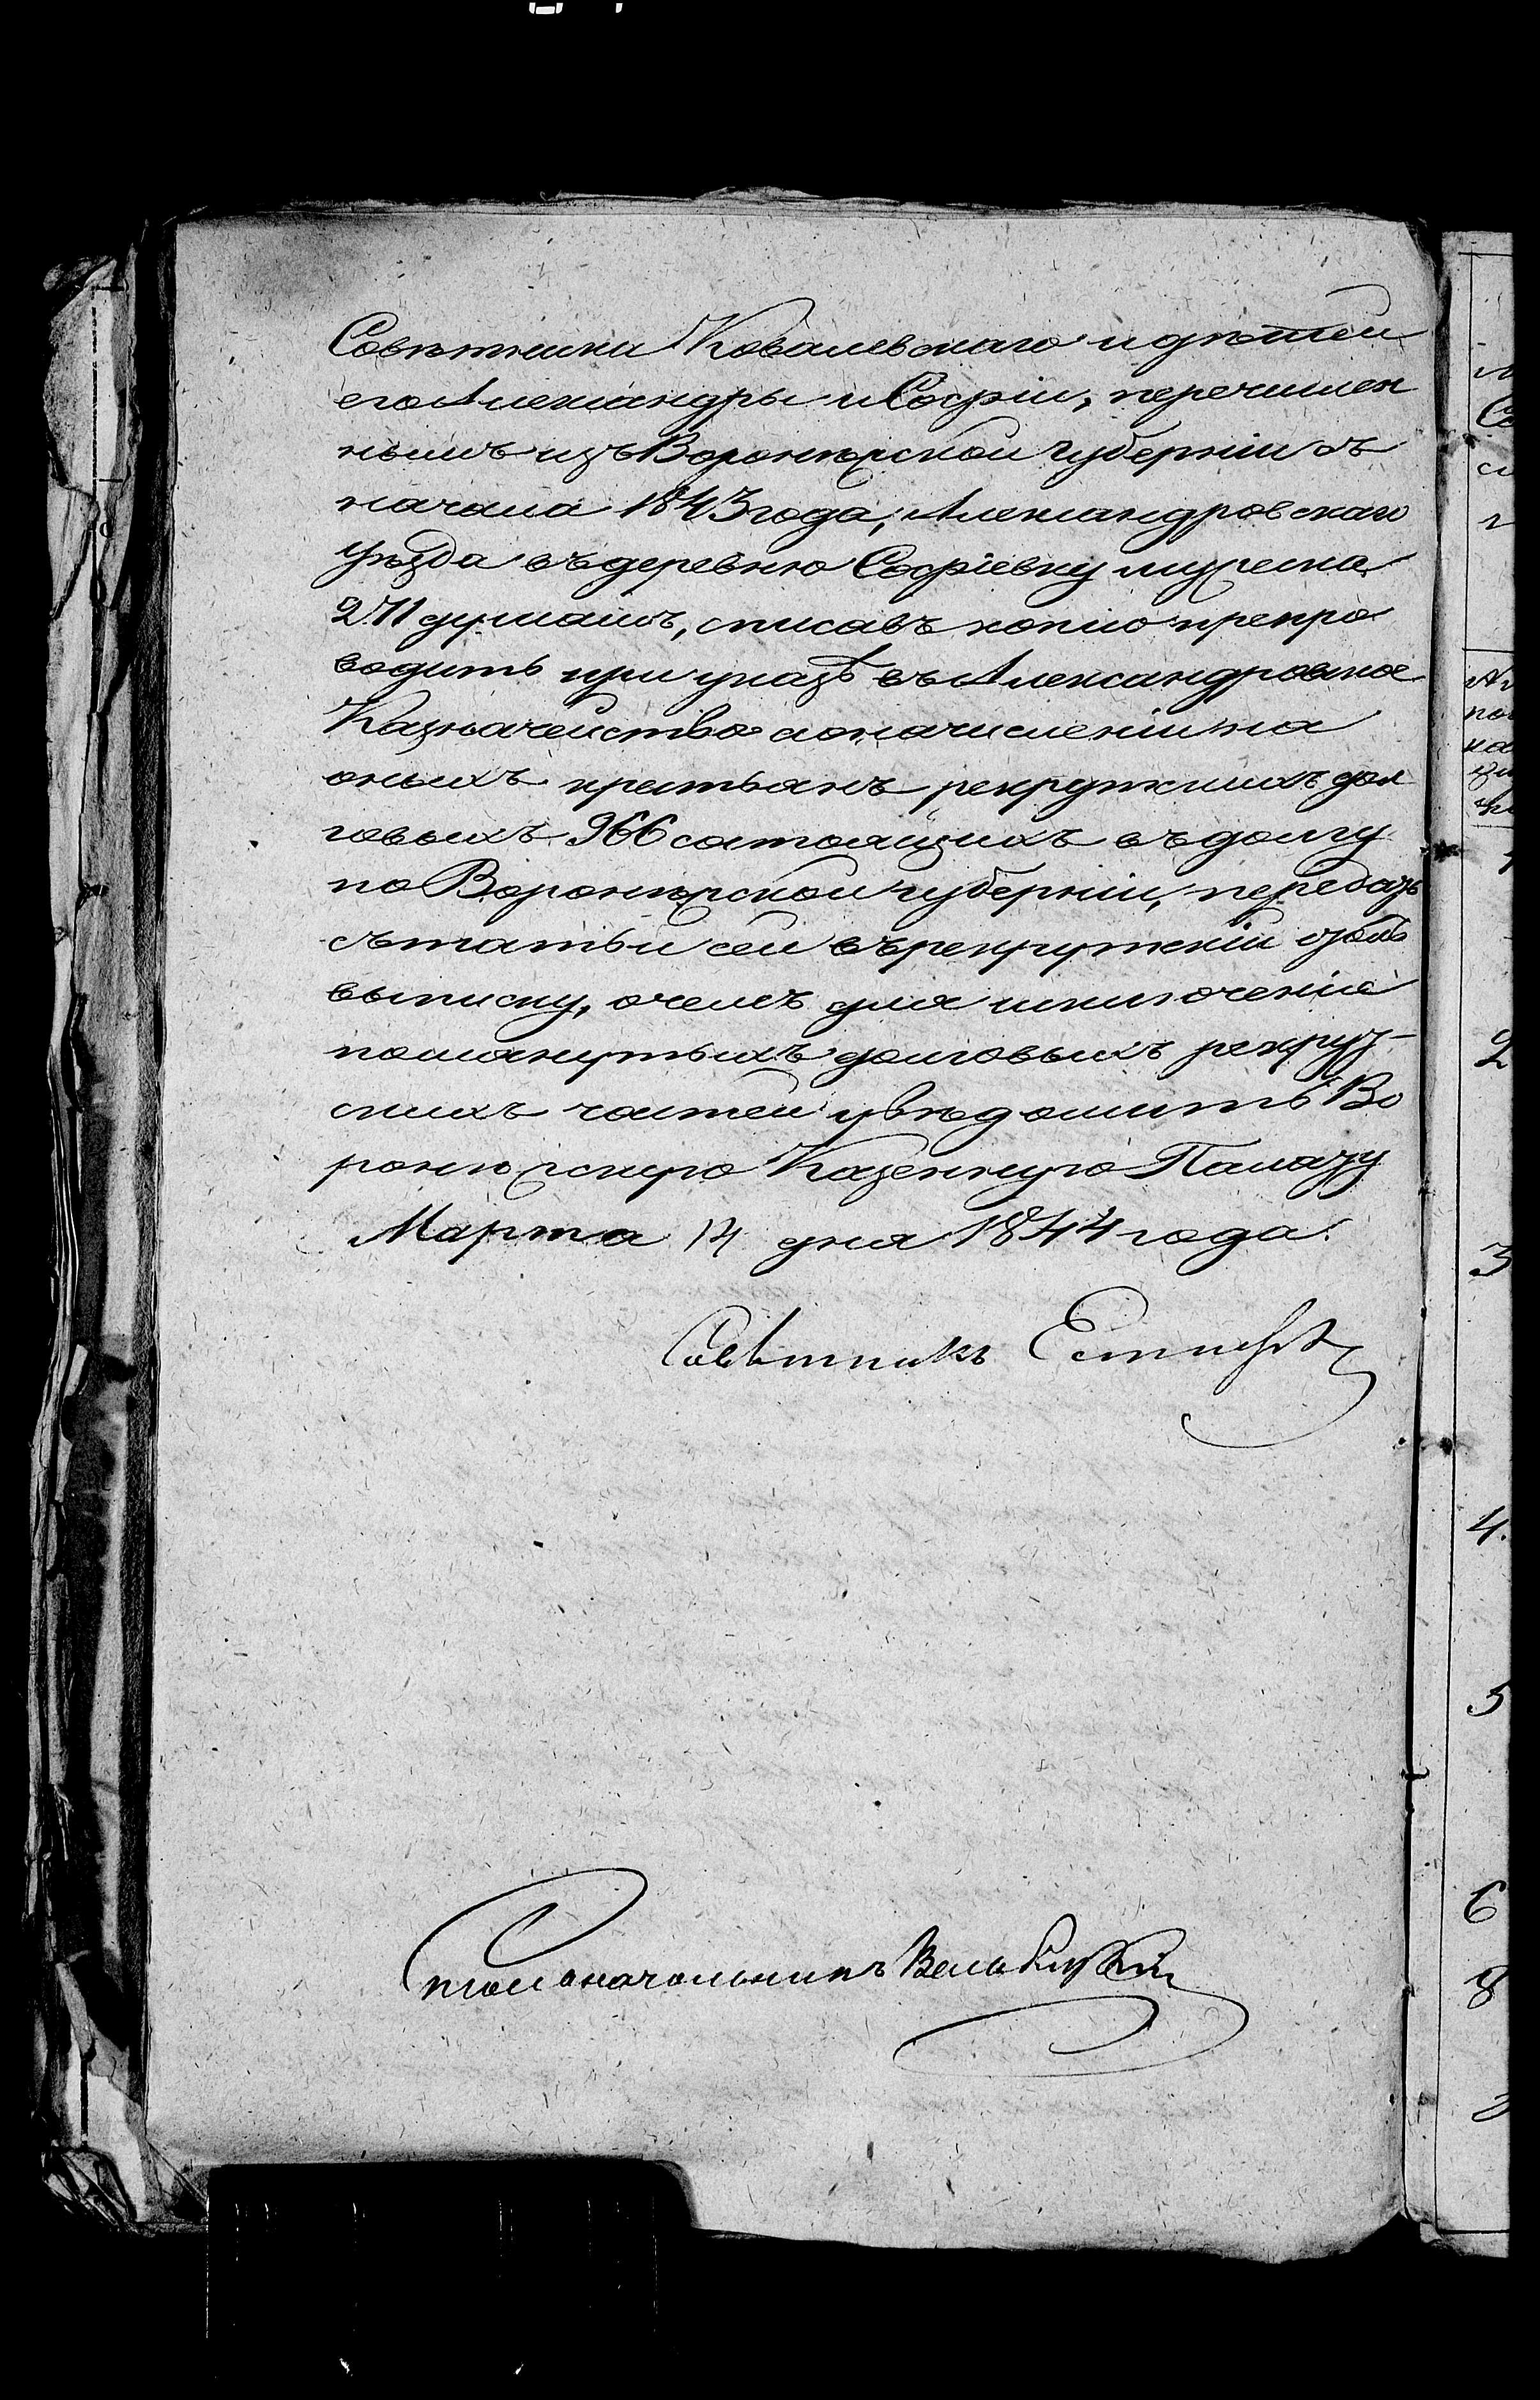 Совѣтника Ковалевскаго и дѣтей
его Александры и Софіи, перечислен
нымъ изъ Воронѣжской Губерніи съ
начала 1843 года, Александровскаго
уѣзда въ деревню Софіевку мужеска
271 душамъ, списавъ копію препро
водить при указѣ въ Александровское
Казначейство о начисленіи на
оныхъ крестьянъ рекрутскихъ дол
говыхъ 966 состоящихъ въ долгу
по Воронѣжской губерніи, передавъ
статьи сей въ рекрутскій столъ
выписку, о чемъ для исключенія
помянутыхъ долговыхъ рекрут-
скихъ частей увѣдомить Во
ронѣжскую Казенную Палату
Марта 14 дня 1844 года.
Совѣтникъ
Столоначальникъ
2
3
4.
5
6
8